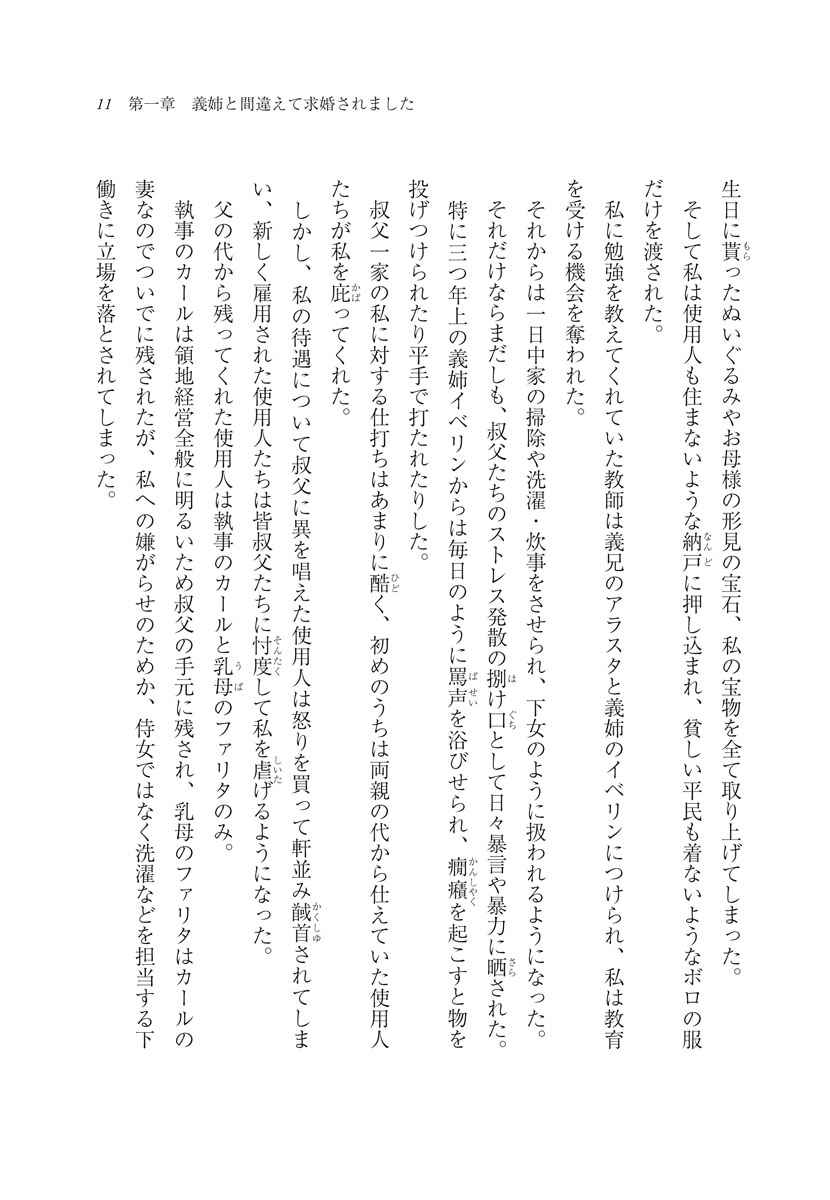 11　第一章　義姉と間違えて求婚されました
生日に貰ったぬいぐるみやお母様の形見の宝石、私の宝物を全て取り上げてしまった。
　そして私は使用人も住まないような納戸に押し込まれ、貧しい平民も着ないようなボロの服
だけを渡された。
　私に勉強を教えてくれていた教師は義兄のアラスタと義姉のイベリンにつけられ、私は教育
を受ける機会を奪われた。
　それからは一日中家の掃除や洗濯・炊事をさせられ、下女のように扱われるようになった。
　それだけならまだしも、叔父たちのストレス発散の捌け口として日々暴言や暴力に晒された。
　特に三つ年上の義姉イベリンからは毎日のように罵声を浴びせられ、癇癪を起こすと物を
投げつけられたり平手で打たれたりした。
　叔父一家の私に対する仕打ちはあまりに酷く、初めのうちは両親の代から仕えていた使用人
たちが私を庇ってくれた。
　しかし、私の待遇について叔父に異を唱えた使用人は怒りを買って軒並み馘首されてしま
い、新しく雇用された使用人たちは皆叔父たちに忖度して私を虐げるようになった。
　父の代から残ってくれた使用人は執事のカールと乳母のファリタのみ。
　執事のカールは領地経営全般に明るいため叔父の手元に残され、乳母のファリタはカールの
妻なのでついでに残されたが、私への嫌がらせのためか、侍女ではなく洗濯などを担当する下
働きに立場を落とされてしまった。